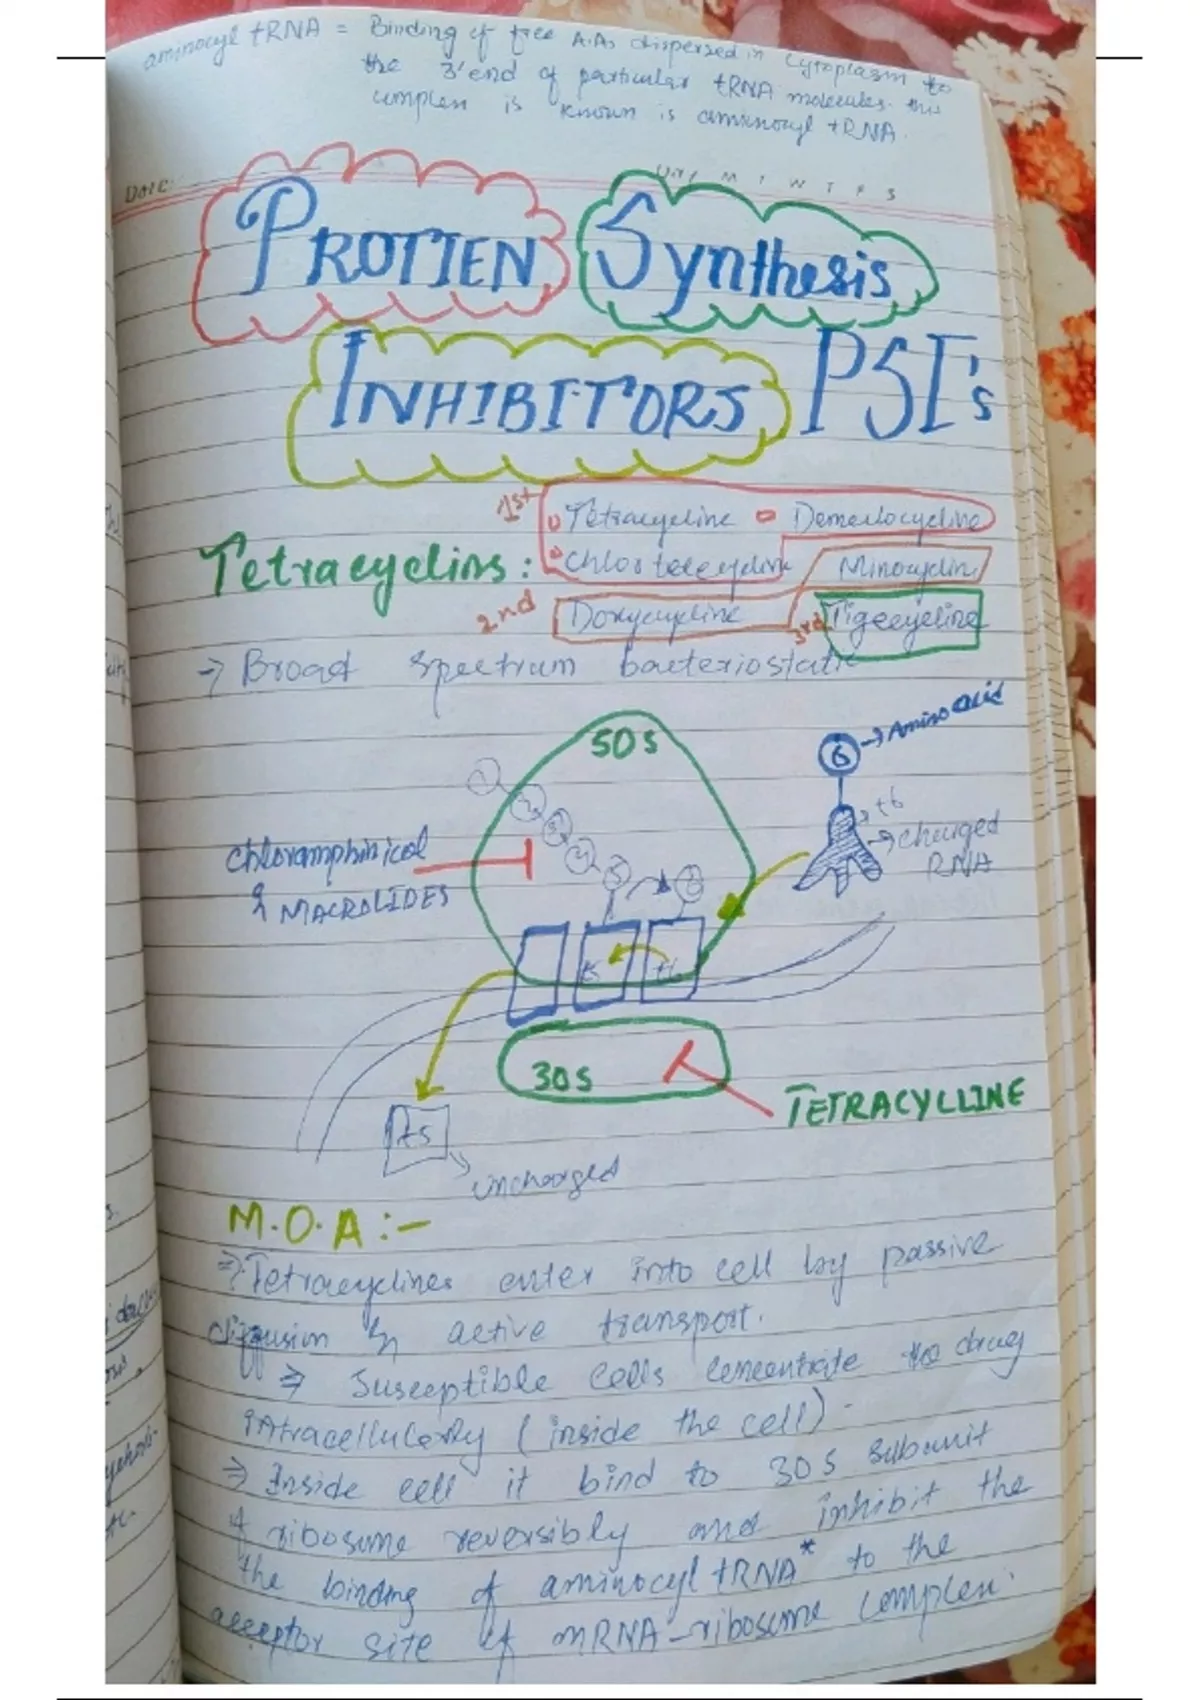 aminocyl tRNA = Binding of free A.As dispersed in Cytoplasm to
the 3'end of particular tRNA molecules. this
complex is known is aminocyl tRNA.
Date:
M T W T F S
PROTIEN Synthesis
INHIBITORS PSI's
1st
Tetracycline Demeclocycline
Tetracyclins:
Chlortetecyclin Minocyclin
2nd Doxycycline 3rd Tigecycline
→ Broad spectrum bacteriostatic
50s
6 → Amino acid
1
2
3
4
5
6
t6
charged
RNA
chloramphinical
& MACROLIDES
t5 t6
30s
TETRACYCLINE
t5
uncharged
M.O.A :-
⇒ Tetracyclines enter into cell by passive
diffusion & active transport.
⇒ Susceptible cells concentrate the drug
intracellularly (inside the cell).
⇒ Inside cell it bind to 30s subunit
of ribosume reversibly and inhibit the
the binding of aminocyl tRNA* to the
acceptor site of mRNA-ribosome complex.